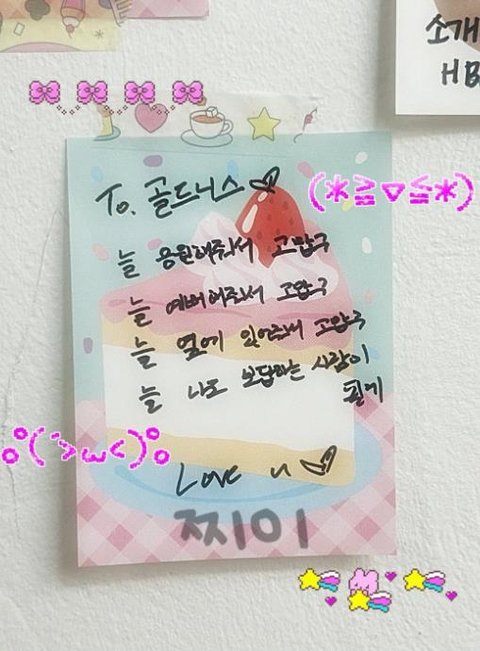 소개
HB
(*≧▽≦*)
To. 골드니스♡
늘 응원해줘서 고맙구
늘 예뻐해줘서 고맙구
늘 옆에 있어줘서 고맙구
늘 나도 보답하는 사람이
될게
°(´>ω<)°。
Love u ♡
찌이이